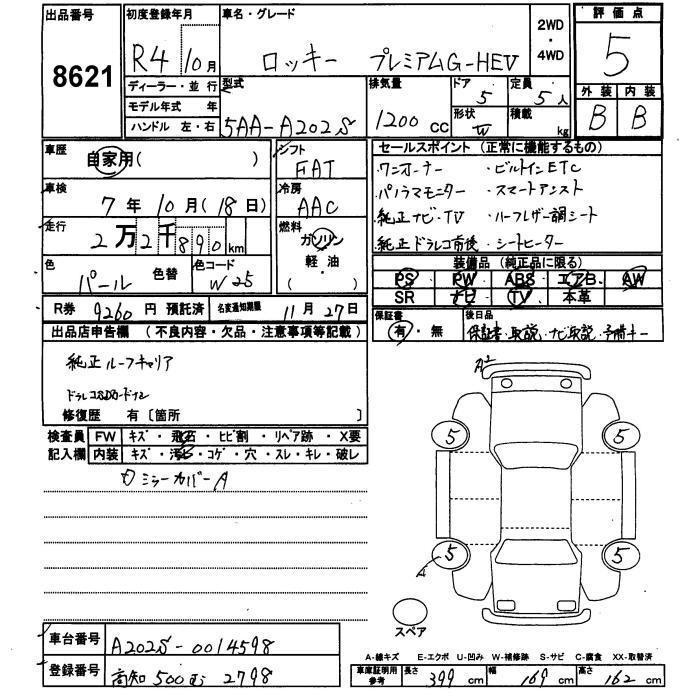 出品番号
8621
初度登録年月
R4 10月
車名・グレード
ロッキー プレミアムG-HEV
2WD
・
4WD
評価点
5
ディーラー・並行
モデル年式 年
ハンドル 左・右
型式
5AA-A202S
排気量
1200 cc
ドア
5
定員
5人
形状
W
積載
kg
外装
B
内装
B
車歴
自家用( )
シフト
FAT
車検
7年10月(18日)
冷房
AAC
走行
2万2千890km
燃料
ガソリン
軽・油
( )
色
パール
色替
色コード
W25
セールスポイント (正常に機能するもの)
・ワンオーナー ・ビルトインETC
・パノラマモニター ・スマートアシスト
・純正ナビ・TV ・ハーフレザー調シート
・純正ドラレコ前後 ・シートヒーター
装備品 (純正品に限る)
PS PW ABS エアB AW
SR ナビ TV 本革
R券 9260円 預託済
名変通知期限
11月27日
保証書
有・無
後日品
保証書・取説・ナビ取説・予備キー
出品店申告欄 (不良内容・欠品・注意事項等記載)
純正ルーフキャリア
修復歴 有〔箇所 〕
検査員
記入欄
FW キズ・飛石・ヒビ割・リペア跡・X要
内装 キズ・汚レ・コゲ・穴・スレ・キレ・破レ
ミラーカバーA
A2
5
5
5
5
A
スペア
車台番号
A202S-0014598
登録番号
高知 500 む 2798
A-線キズ E-エクボ U-凹み W-補修跡 S-サビ C-腐食 XX-取替済
車庫証明用
参考
長さ 399 cm
幅 169 cm
高さ 162 cm